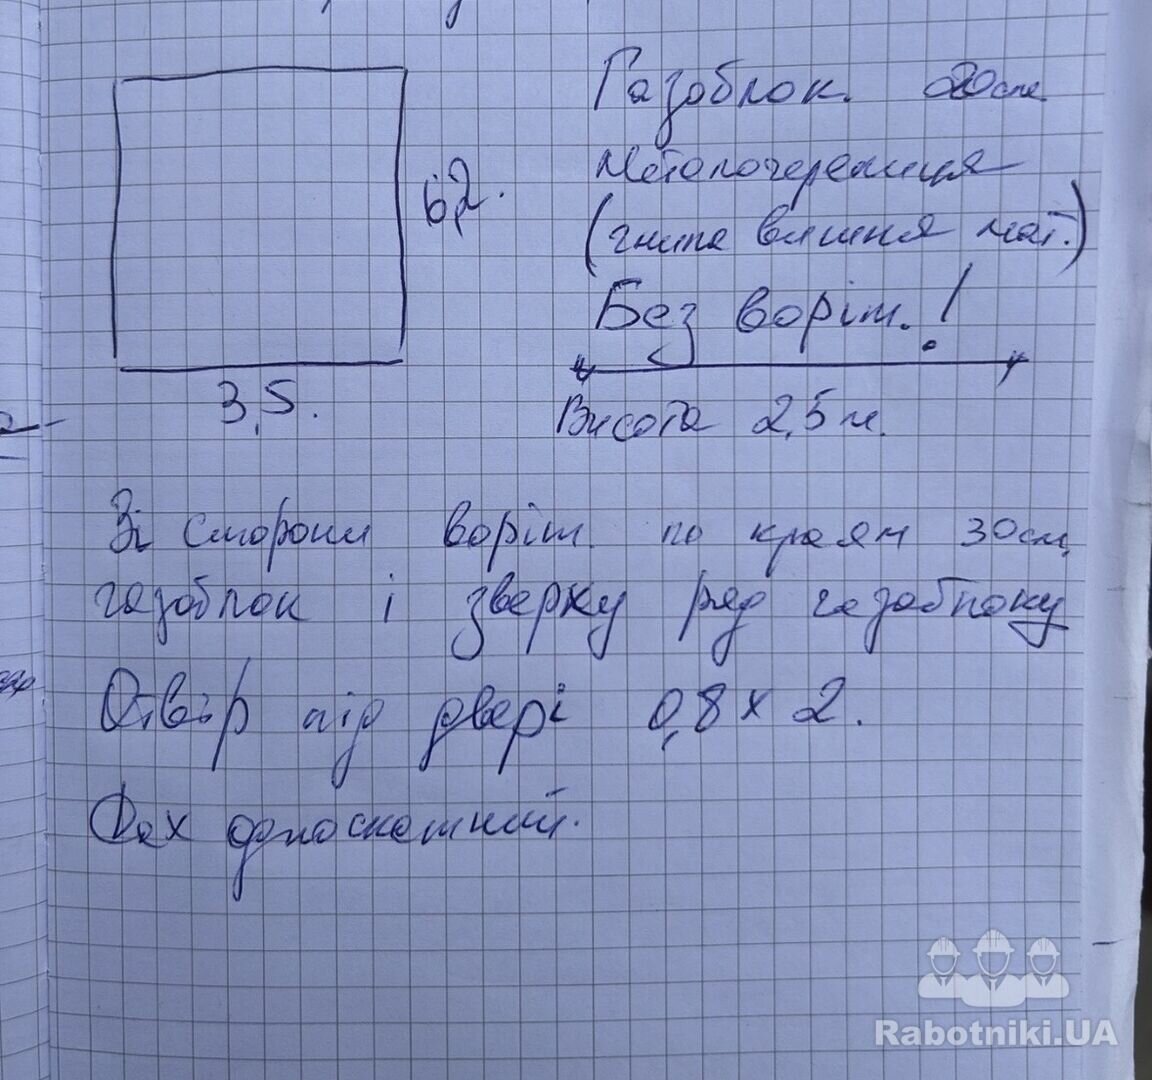 Газоблок. 20см.
Металочерепиця
(гнила вишня мат.)
6,2.
Без воріт.!
3,5.
Висота 2,5 м.
Зі сторони воріт. по краям 30см,
газоблок і зверху ряд газоблоку
Отвір під двері 0,8 х 2.
Дах односкатний.
Rabotniki.UA